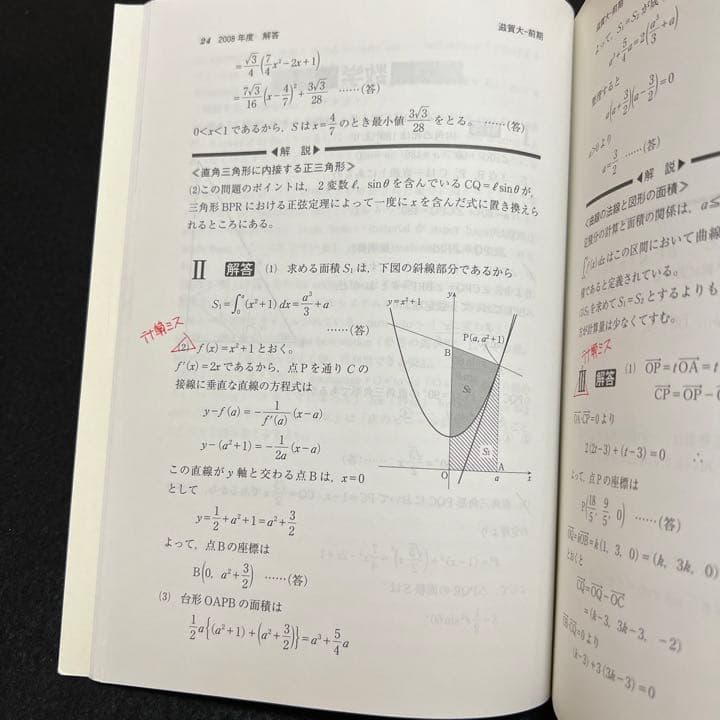 24 2008年度 解答
滋賀大-前期
=√3/4(7/4x²-2x+1)
=7√3/16(x-4/7)²+3√3/28 ……(答)
0<x<1であるから、Sはx=4/7のとき最小値3√3/28をとる。……(答)
◀解 説▶
≪直角三角形に内接する正三角形≫
(2)この問題のポイントは、2変数ℓ, sinθを含んでいるCQ=ℓsinθが、
三角形BPRにおける正弦定理によって一度にxを含んだ式に置き換えら
れるところにある。
Ⅱ 解答 (1) 求める面積S₁は、下図の斜線部分であるから
S₁=∫₀ᵃ(x²+1)dx=a³/3+a
……(答)
計算ミス
(2) f(x)=x²+1とおく。
f'(x)=2xであるから、点Pを通りCの
接線に垂直な直線の方程式は
y-f(a)=-1/f'(a)(x-a)
y-(a²+1)=-1/2a(x-a)
この直線がy軸と交わる点Bは、x=0
として
y=1/2+a²+1=a²+3/2
よって、点Bの座標は
B(0, a²+3/2) ……(答)
(3) 台形OAPBの面積は
1/2a{(a²+1)+(a²+3/2)}=a³+5/4a
y=x²+1
y
P(a, a²+1)
B
S₂
S₁
A
O
a
x
滋賀大-前期
よって、S₁=S₂が
a³+5/4a=2(a³/3+a)
整理すると
a(a+3/2)(a-3/2)=0
a>0より
a=3/2 ……(答)
◀解 説▶
≪曲線の法線と図形の面積≫
定積分の計算と面積の関係は、a≦
はこの区間において曲線
積であると定義されている。
を求めてS₁=S₂とするよりも
計算量は少なくてすむ。
計算ミス
Ⅲ 解答 (1) OP=tOA=t
CP=OP-O
OA・CP=0より
2(2t-3)+(t-3)=0 ∴
よって、点Pの座標は
P(18/5, 9/5, 0) ……(答)
OQ=kOB=k(1, 3, 0)=(k, 3k, 0)
とおくと
CQ=OQ-OC
=(k-3, 3k-3, -2)
OB・CQ=0より
(k-3)+3(3k-3)=0